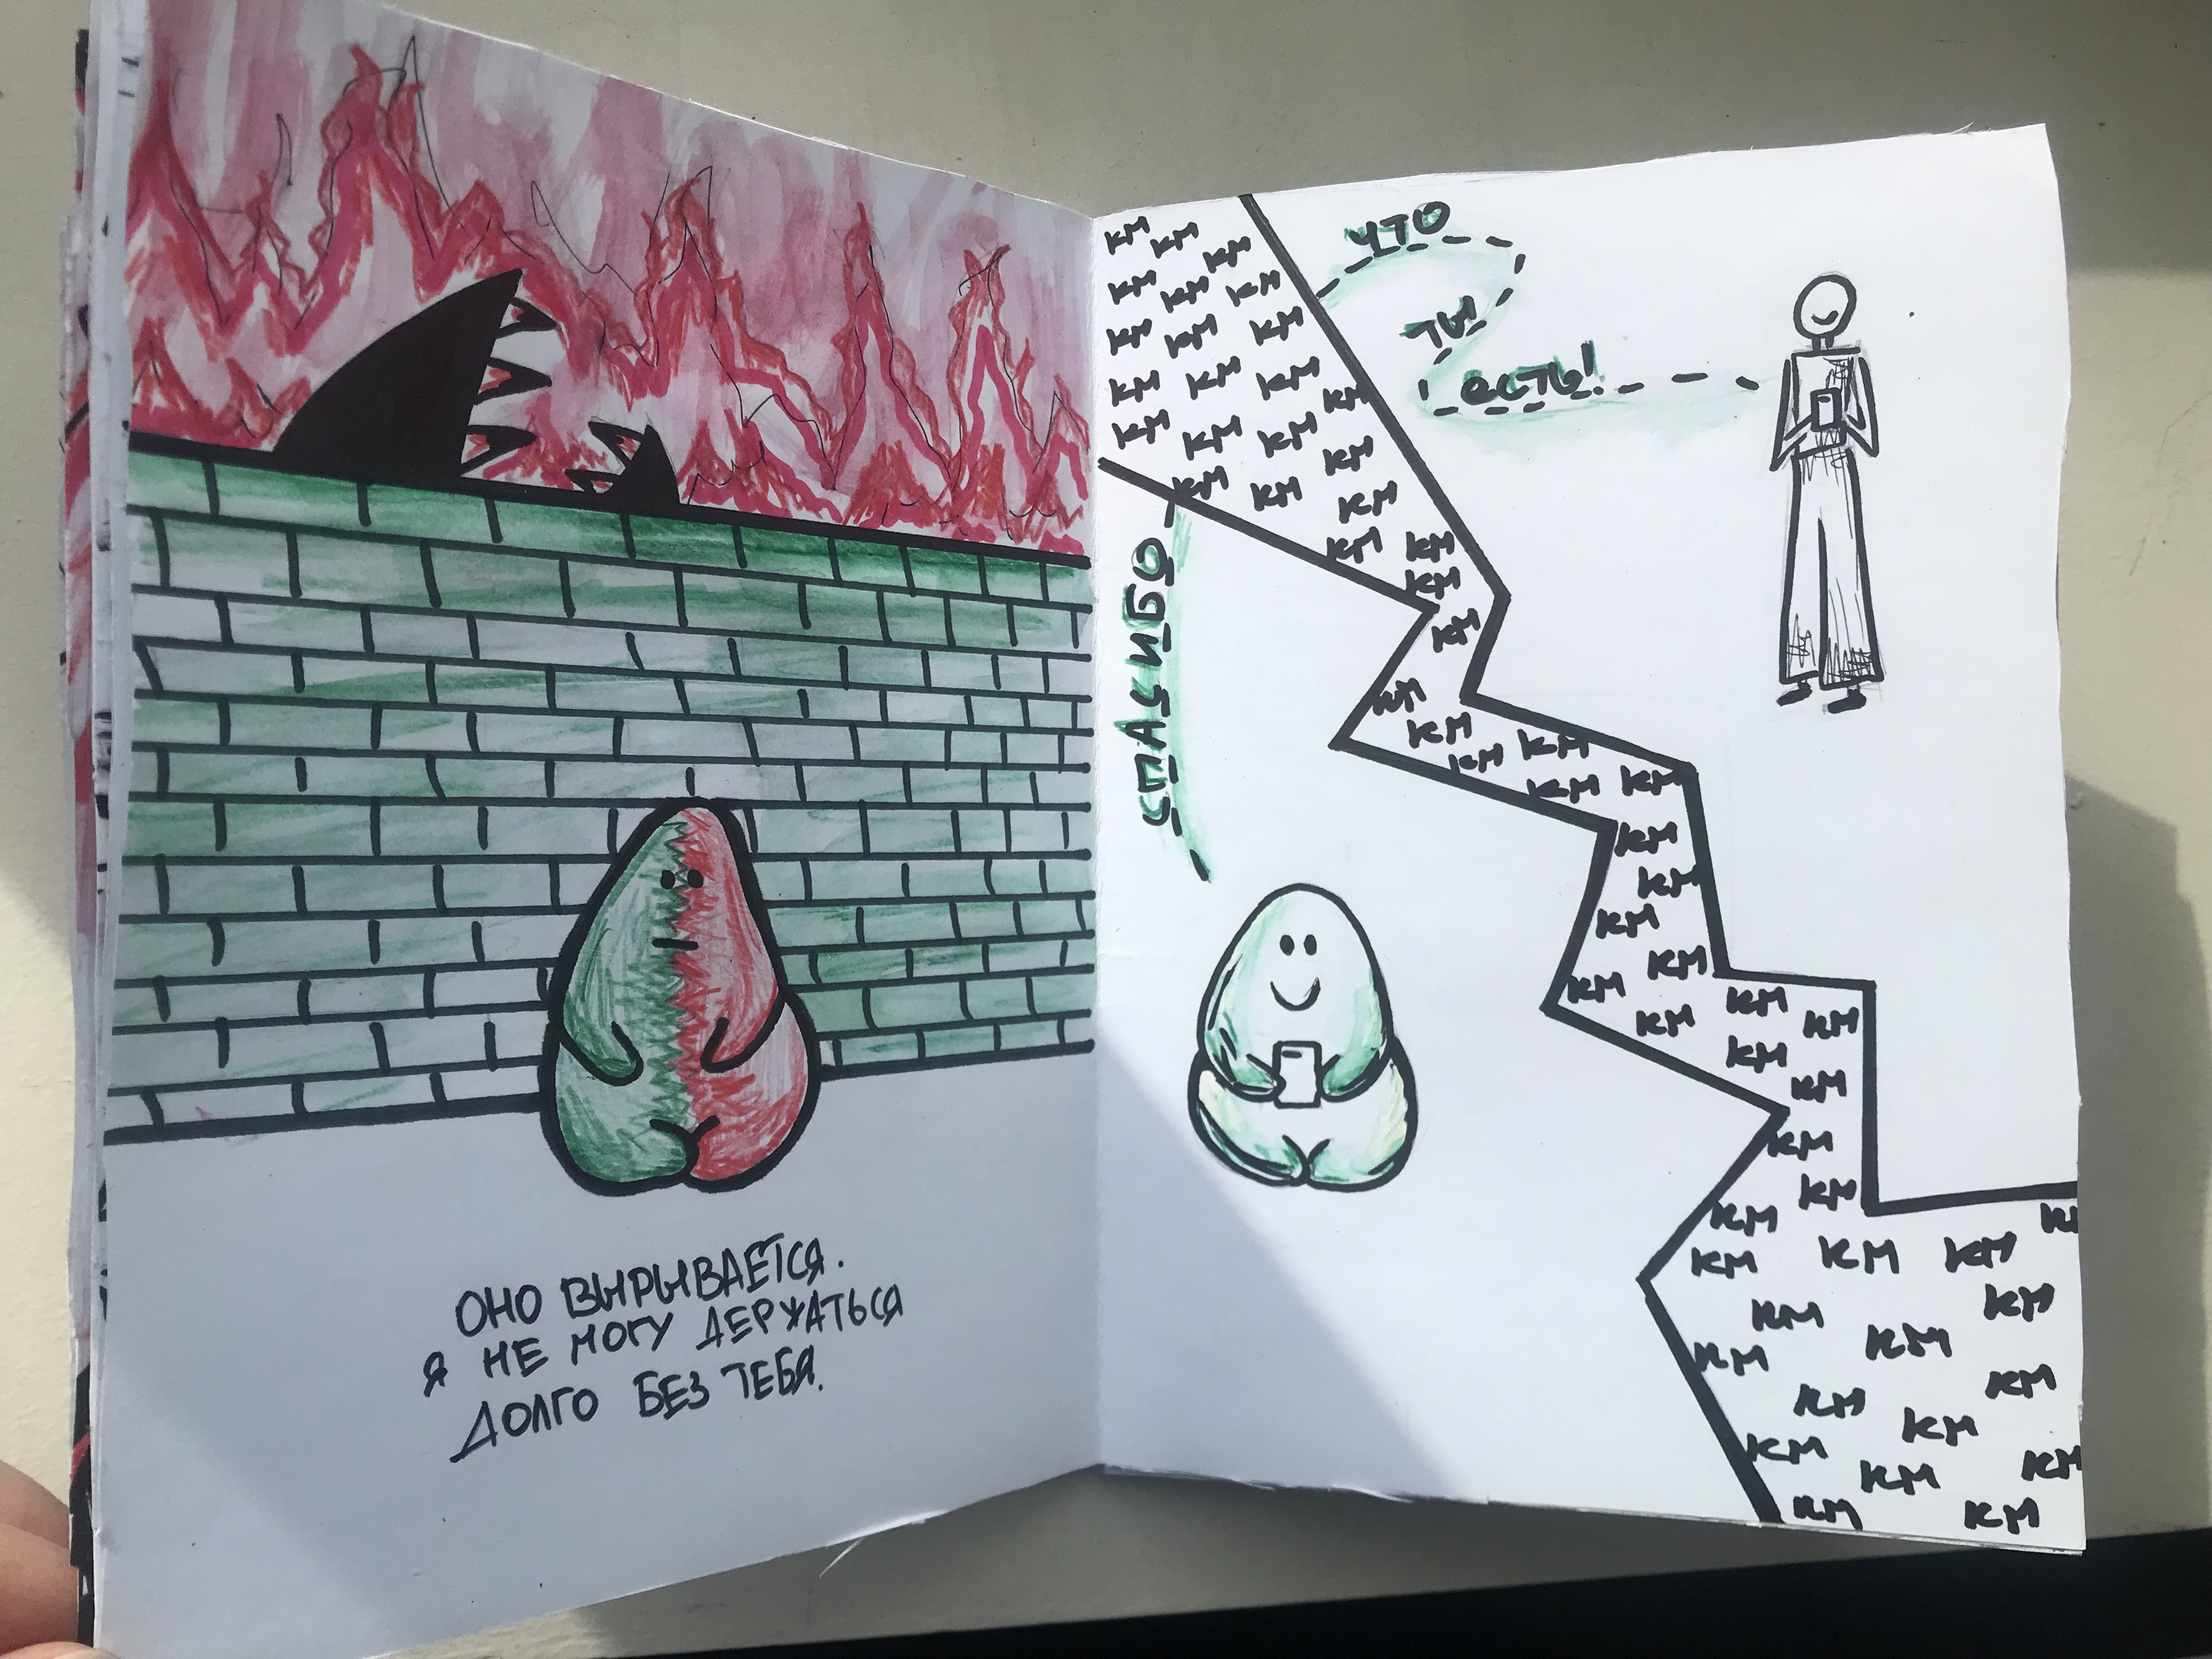 ОНО ВЫРЫВАЕТСЯ.
Я НЕ МОГУ ДЕРЖАТЬСЯ
ДОЛГО БЕЗ ТЕБЯ.
СПАСИБО
ЧТО
ТЫ
ЕСТЬ!
КМ КМ
КМ КМ КМ
КМ КМ КМ
КМ КМ КМ
КМ КМ КМ КМ
КМ КМ КМ
КМ КМ КМ
КМ КМ
КМ
КМ
КМ
КМ КМ
КМ КМ КМ
КМ
КМ
КМ
КМ КМ
КМ КМ КМ
КМ
КМ
КМ
КМ КМ
КМ КМ КМ
КМ КМ
КМ КМ
КМ КМ
КМ КМ
КМ КМ
КМ КМ